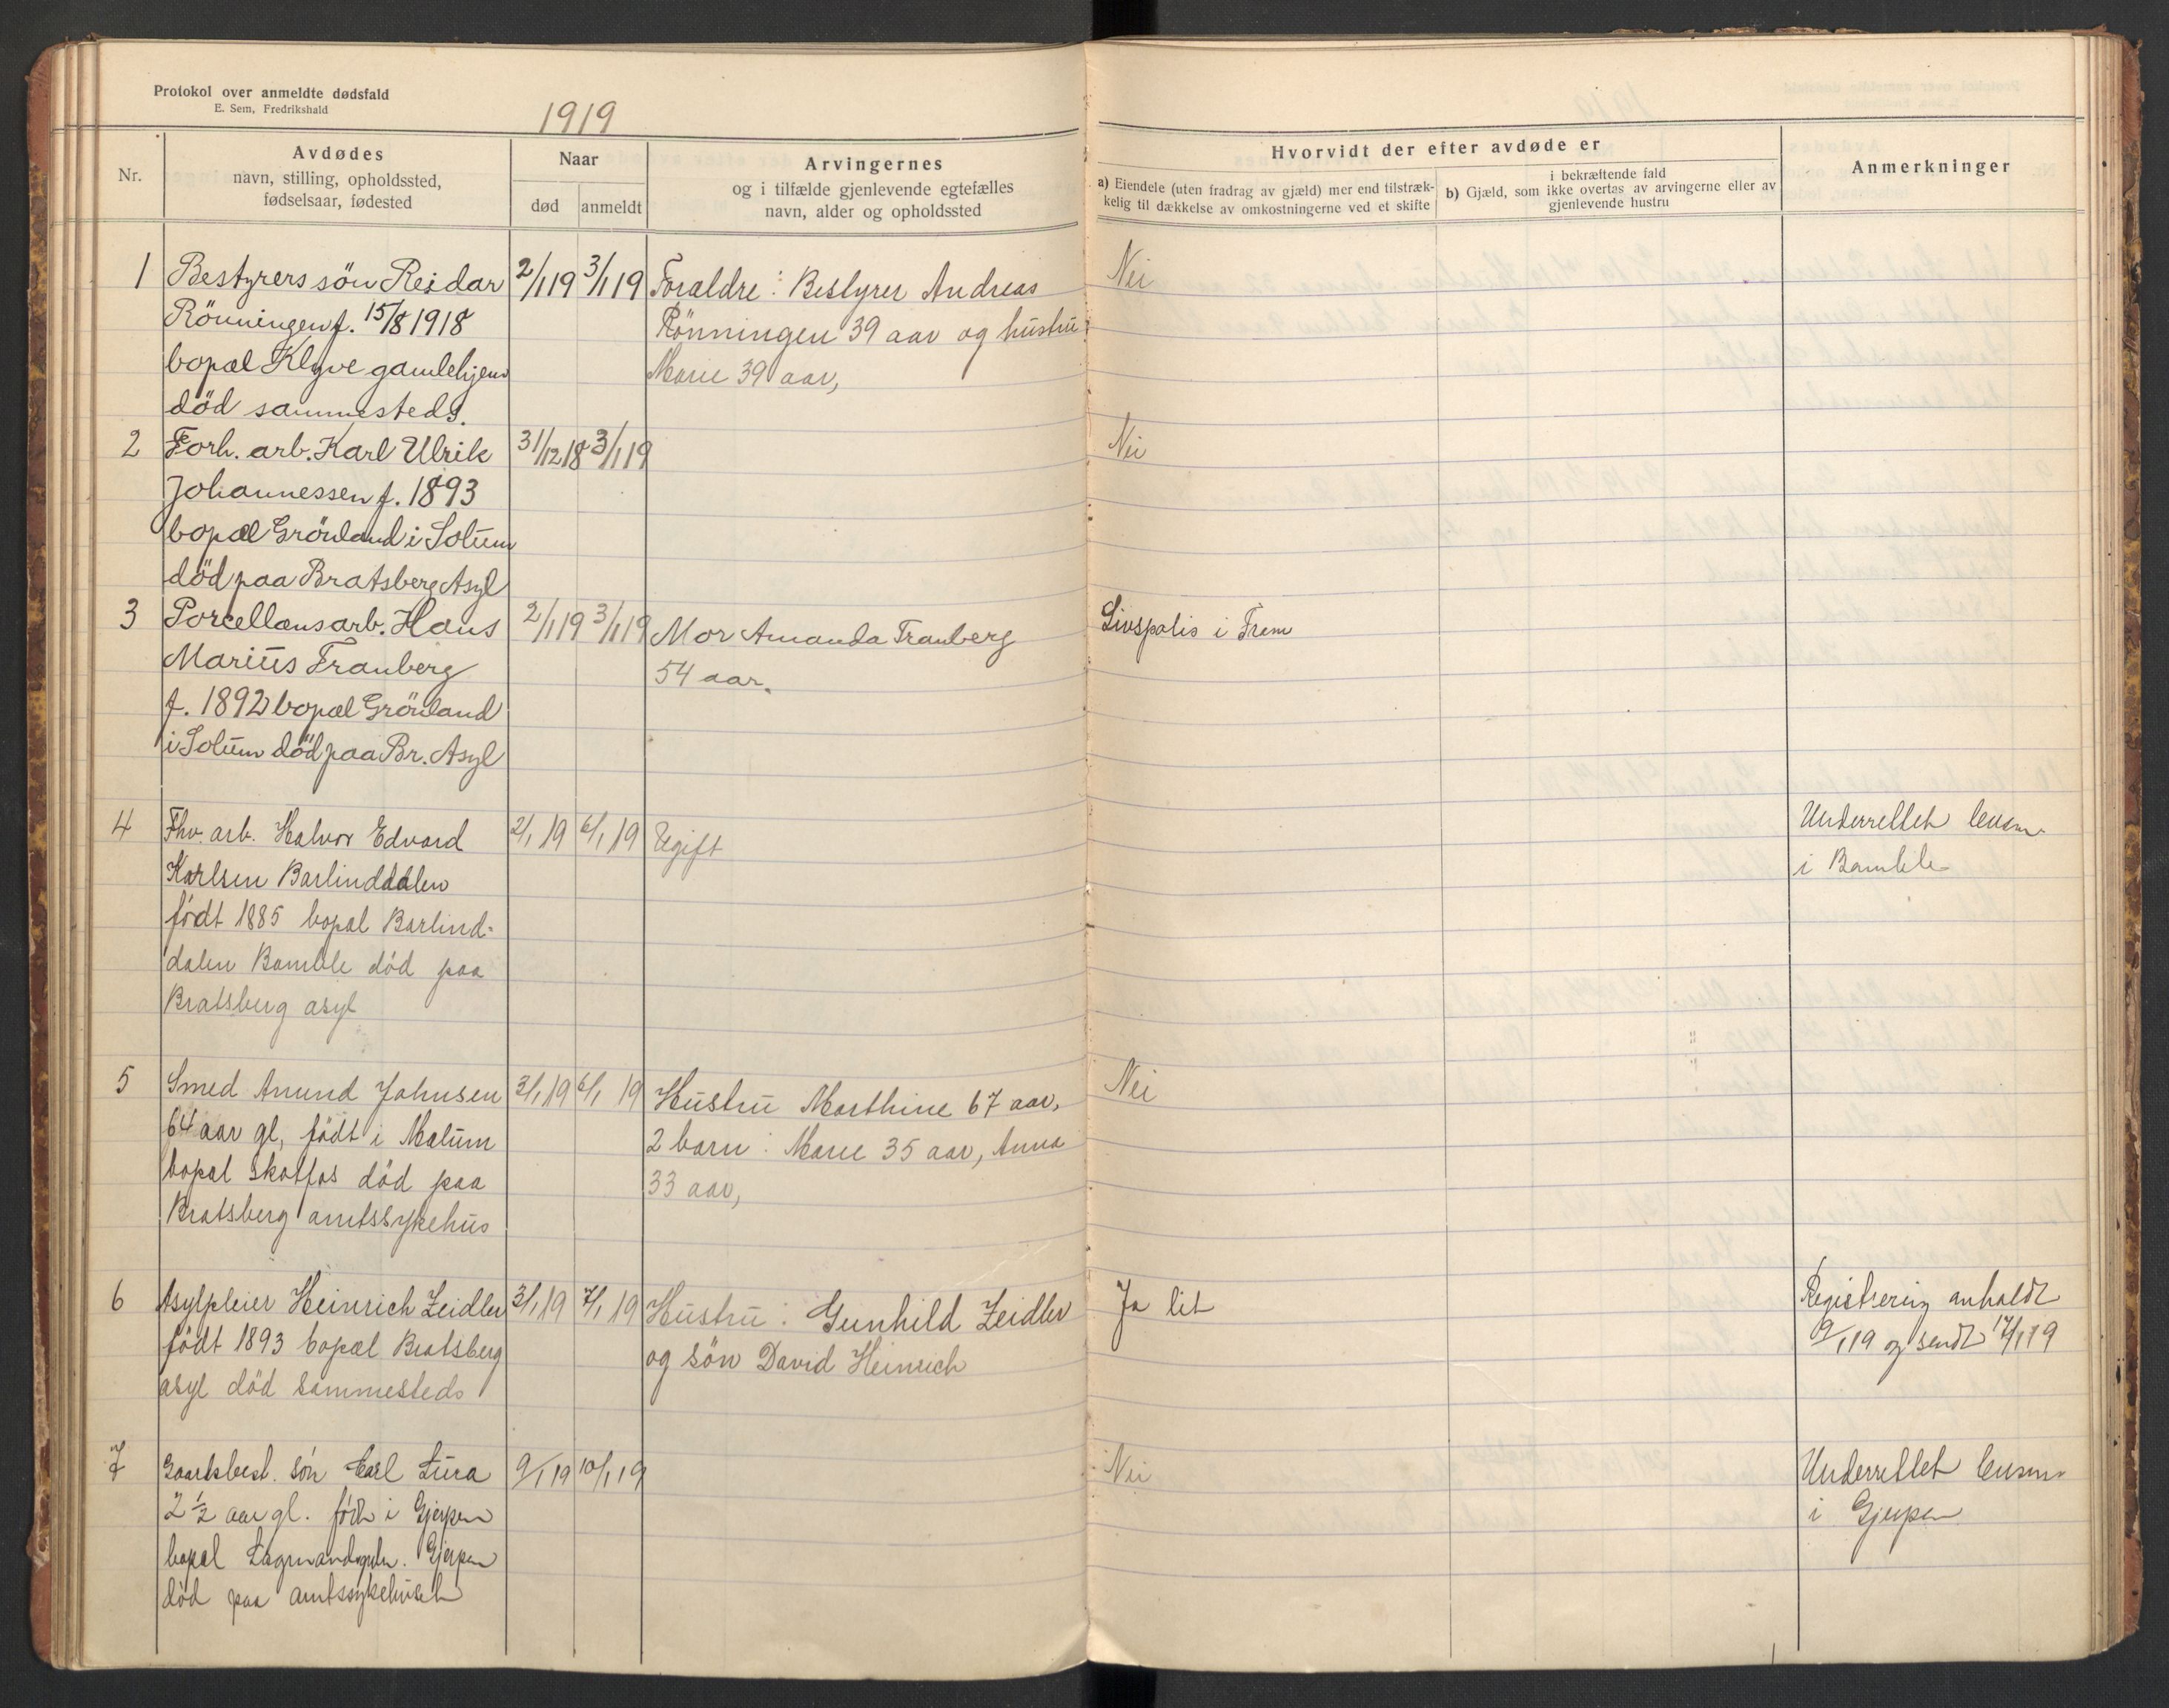 Protokol over anmeldte dødsfald
E. Sem, Fredrikshald
1919
Nr.
Avdødes
navn, stilling, opholdssted,
fødselsaar, fødested
Naar
død
anmeldt
Arvingernes
og i tilfælde gjenlevende egtefælles
navn, alder og opholdssted
Hvorvidt der efter avdøde er
a) Eiendele (uten fradrag av gjæld) mer end tilstræk-
kelig til dækkelse av omkostningerne ved et skifte
i bekræftende fald
b) Gjæld, som ikke overtas av arvingerne eller av
gjenlevende hustru
Anmerkninger
1
Bestyrers sön Reidar
Rönningen f. 15/8 1918
bopæl Klyve gamlehjem
död sammesteds.
2/1 19
3/1 19
Foraldre: Bestyrer Andreas
Rönningen 39 aar og hustru
Marie 39 aar,
Nei
2
Forh. arb. Karl Ulrik
Johannessen f. 1893
bopæl Grönland i Solum
död paa Bratsberg Asyl
31/12 18
3/1 19
Nei
3
Porcellansarb. Hans
Marius Tranberg
f. 1892 bopæl Grönland
i Solum död paa Br. Asyl
2/1 19
3/1 19
Mor Amanda Tranberg
54 aar.
Livspolis i Fram
4
Fhv. arb. Halvor Edvard
Karlsen Barlinddalen
födt 1885 bopæl Barlind-
dalen Bamble död paa
Bratsberg asyl
2/1 19
6/1 19
Ugift
Underrettet lensm.
i Bamble
5
Smed Anund Johnsen
64 aar gl, födt i Melum
bopæl Skotfos död paa
Bratsberg amtssykehus
3/1 19
6/1 19
Hustru Marthine 67 aar,
2 barn: Marie 35 aar, Anna
33 aar,
Nei
6
Asylpleier Heinrich Zeidler
födt 1893 bopæl Bratsberg
asyl död sammesteds
3/1 19
7/1 19
Hustru: Gunhild Zeidler
og sön David Heinrich
Ja lit
Registrering anholdt
9/1 19 og sendt 17/1 19
7
Gaardsbest. sön Carl Lura
2 1/2 aar gl. födt i Gjerpen
bopæl Gjerpen
död paa amtssykehuset
9/1 19
10/1 19
Nei
Underrettet lensm.
i Gjerpen